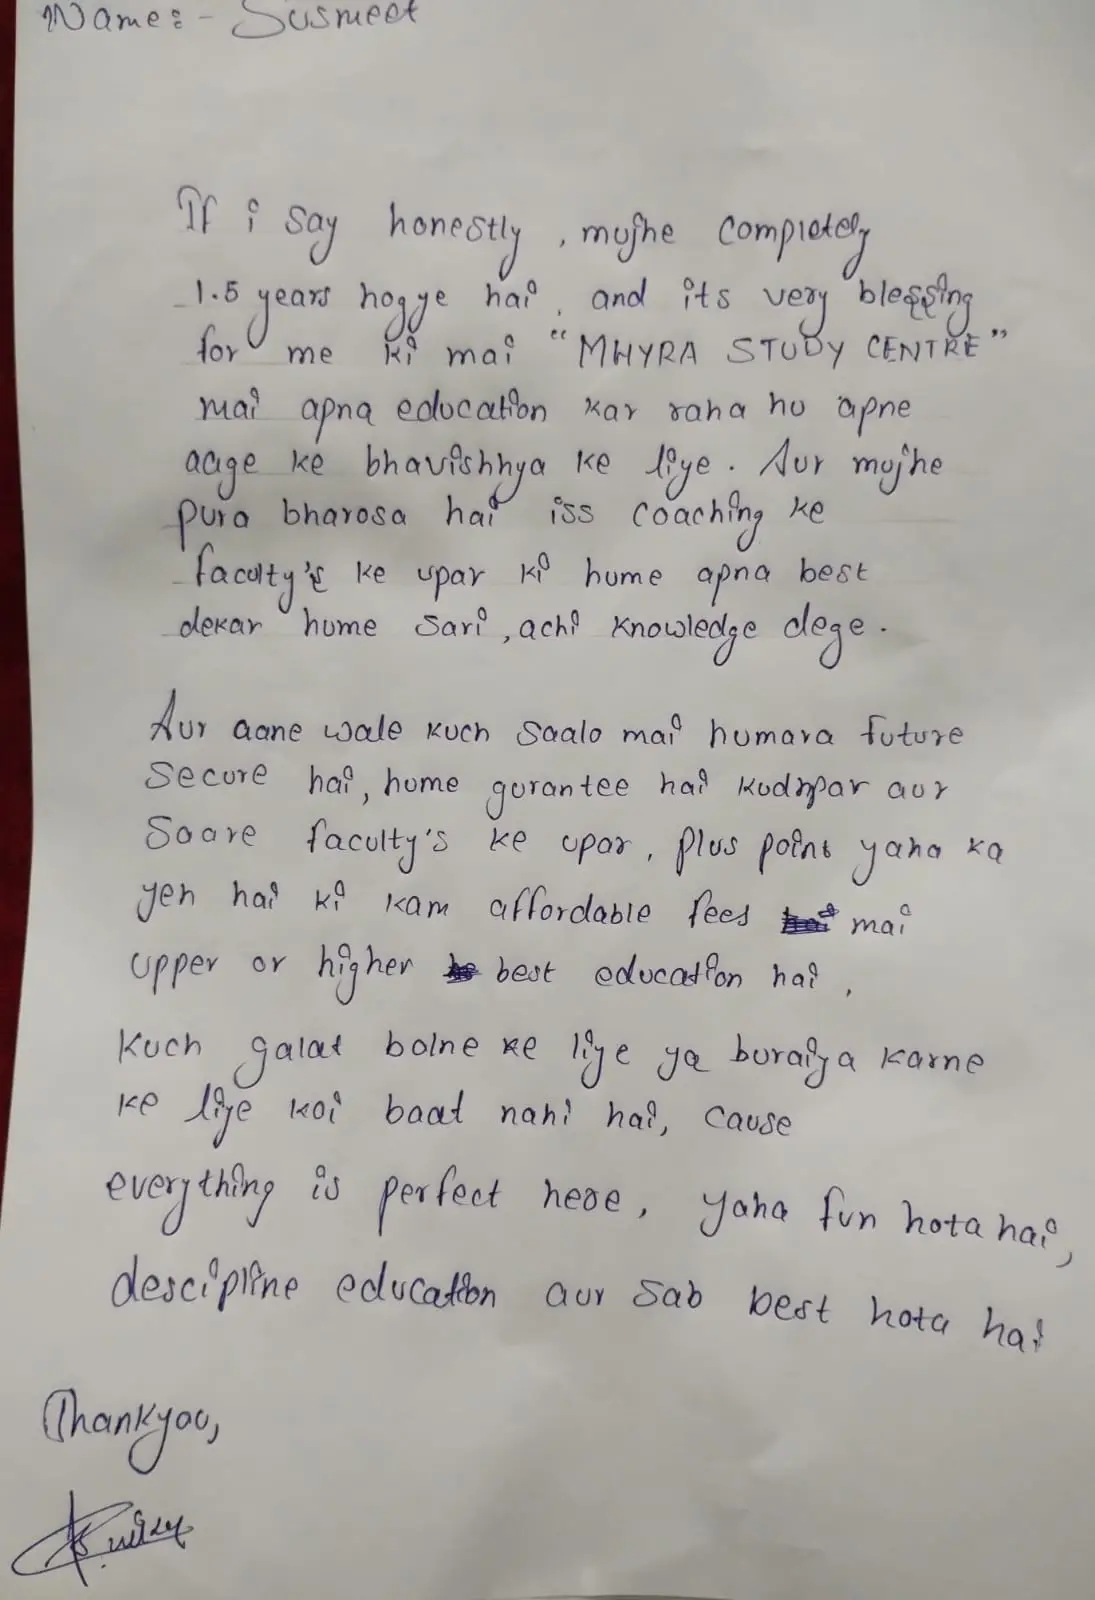 Name:- Susmeet
If i say honestly, mujhe completely
1.5 years hogye hai, and its very blessing
for me ki mai "MHYRA STUDY CENTRE"
mai apna education kar raha hu apne
aage ke bhavishhya ke liye. Aur mujhe
pura bharosa hai iss coaching ke
faculty's ke upar ki hume apna best
dekar hume sari, achi knowledge dege.
Aur aane wale kuch saalo mai humara future
secure hai, hume gurantee hai kudhpar aur
Saare faculty's ke upar, plus point yaha ka
yeh hai ki kam affordable fees mai
upper or higher best education hai,
Kuch galat bolne ke liye ya buraiya karne
ke liye koi baat nahi hai, cause
everything is perfect here, yaha fun hota hai,
descipline education aur sab best hota hai
Thankyou,